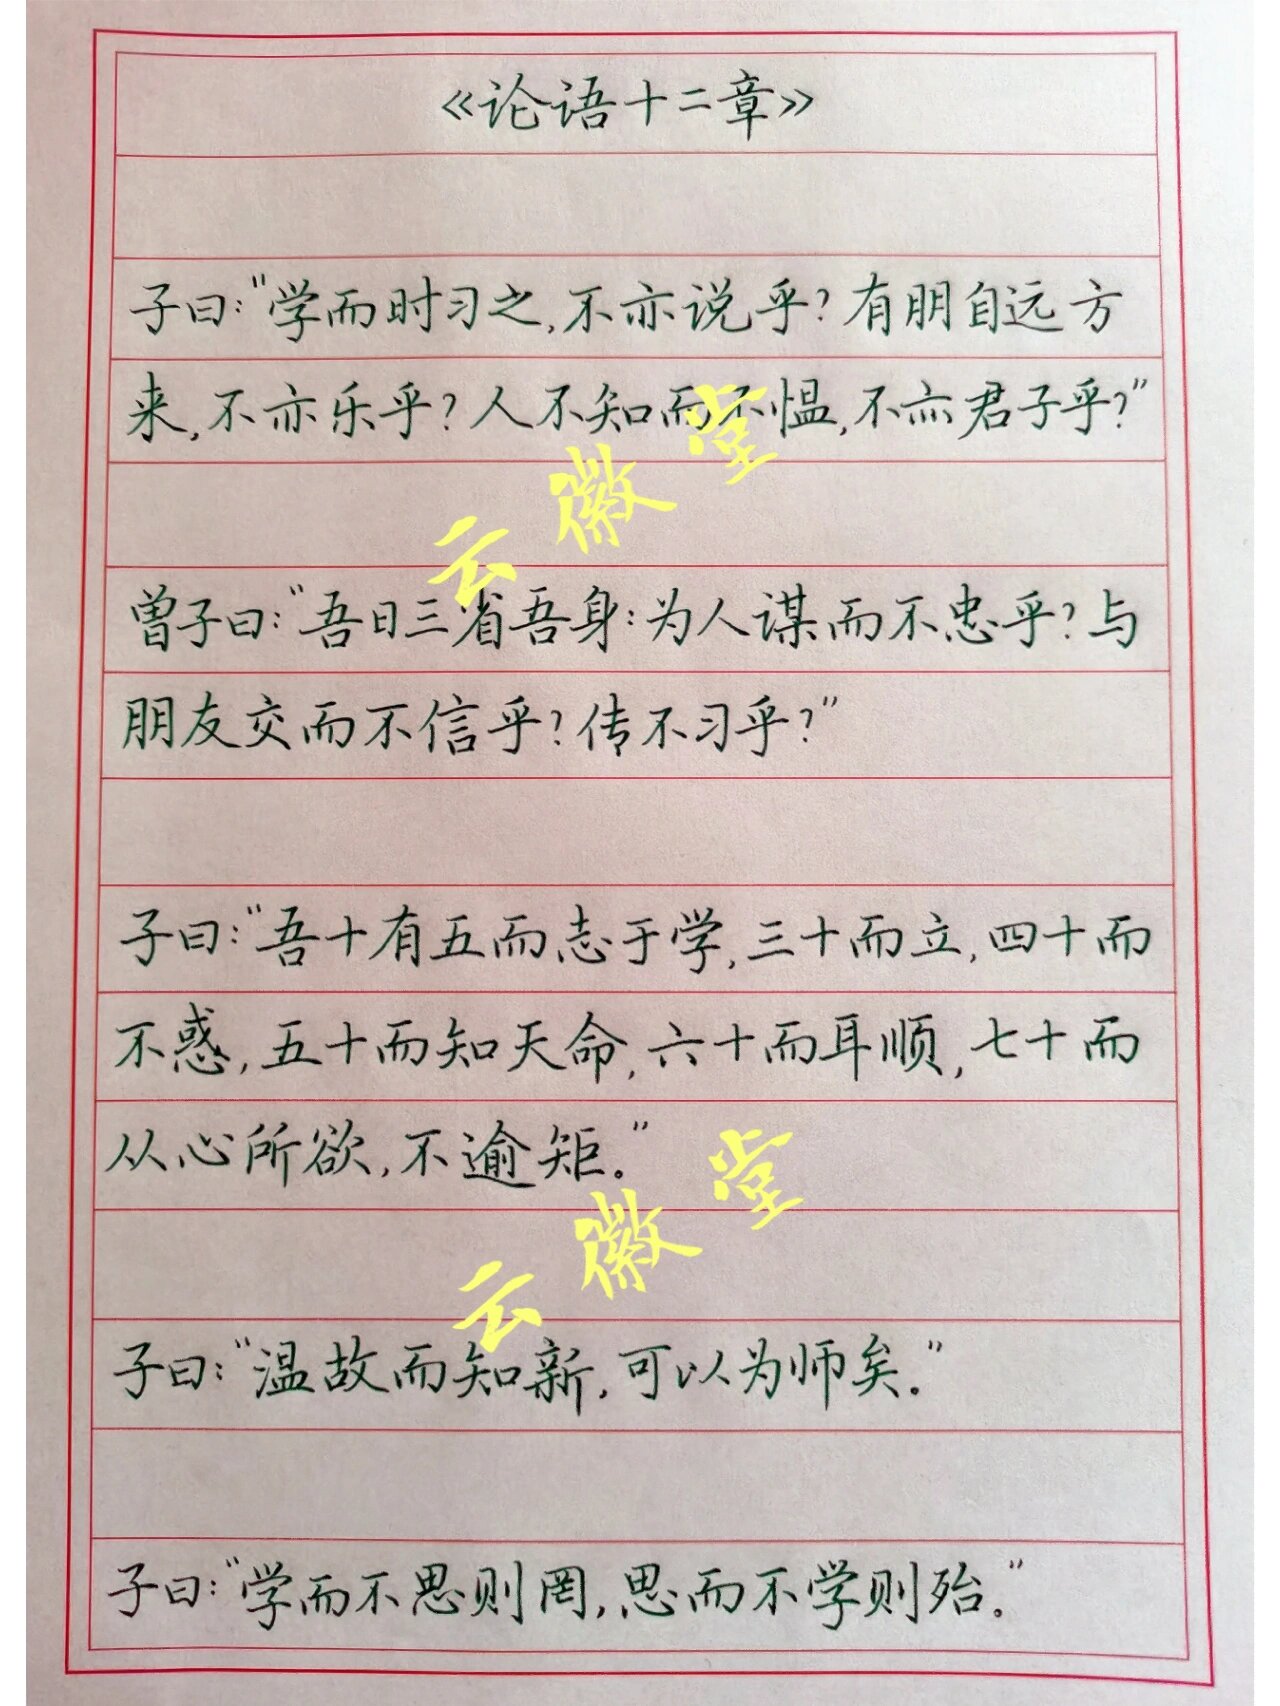 《论语十二章》
子曰:"学而时习之,不亦说乎?有朋自远方
来,不亦乐乎?人不知而不愠,不亦君子乎?"
云徽堂
曾子曰:"吾日三省吾身:为人谋而不忠乎?与
朋友交而不信乎?传不习乎?"
子曰:"吾十有五而志于学,三十而立,四十而
不惑,五十而知天命,六十而耳顺,七十而
从心所欲,不逾矩。"
云徽堂
子曰:"温故而知新,可以为师矣。"
子曰:"学而不思则罔,思而不学则殆。"